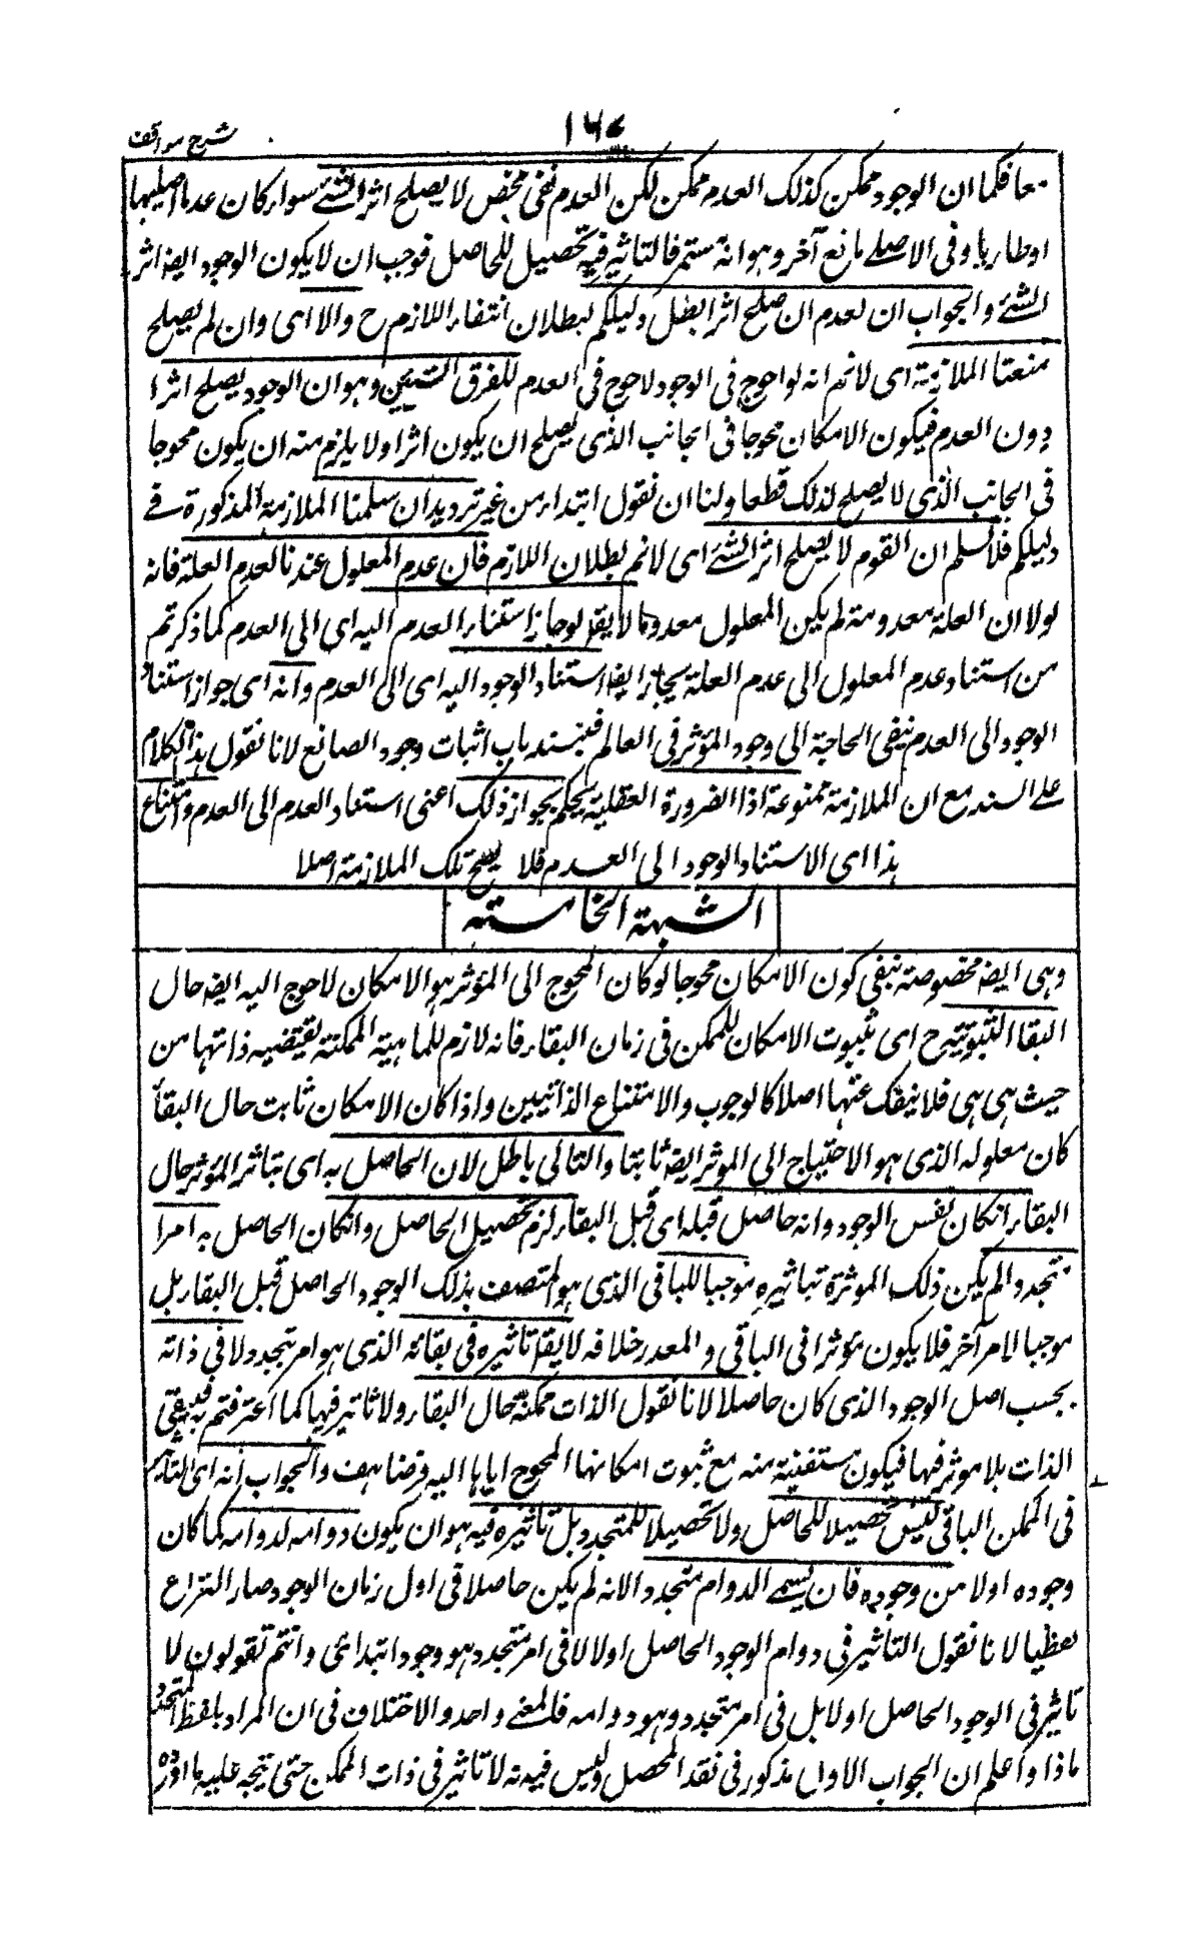 شرح مواقف
١٦٧
معا فكما ان الوجود ممكن كذلك العدم ممكن لكن العدم نفى محض لا يصلح اثرا لشئ سواء كان عدما اصليا
او طاريا وفى الاصلے مانع آخر وهو انه مستمر فالتاثير فيه تحصيل للحاصل فوجب ان لا يكون الوجود ايضا اثر
الشئ والجواب ان لعدم ان صلح اثرا بطل دليلكم لبطلان انتفاء اللازم ح والا اى وان لم يصلح
منعنا الملازمة اى لانم انه لو احوج فى الوجود لاحوج فى العدم للفرق البين وهو ان الوجود يصلح اثرا
دون العدم فيكون الامكان محوجا فى الجانب الذى يصلح ان يكون اثرا ولا يلزم منه ان يكون محوجا
فى الجانب الذى لا يصلح لذلك قطعا ولنا ان نقول ابتداء من غير ترديد ان سلمنا الملازمة المذكورة فے
دليلكم فلا نسلم ان العدم لا يصلح اثرا لشئ اى لانم بطلان اللازم فان عدم المعلول عندنا لعدم العلة فانه
لولا ان العلة معدومة لم يكن المعلول معدوما لا يقال لو جاز استناد العدم اليه اى الى العدم كما ذكرتم
من استناد عدم المعلول الى عدم العلة يجاز ايضا استناد الوجود اليه اى الى العدم وانه اى جواز استناد
الوجود الى العدم ينفى الحاجة الى وجود المؤثر فى العالم فينسد باب اثبات وجود الصانع لانا نقول هذا الكلام
علے السند مع ان الملازمة ممنوعة اذا الضرورة العقلية يحكم بجواز ذلك اعنى استناد العدم الى العدم وامتناع
هذا اى الاستناد الوجود الى العدم فلا يصح تلك الملازمة اصلا
الشبهة الخامسة
وهى ايضا مخصوصة بنفى كون الامكان محوجا لو كان المحوج الى المؤثر هو الامكان لاحوج اليه ايضا حال
البقا لثبوته ح اى ثبوت الامكان للممكن فى زمان البقاء فانه لازم للماهية الممكنة يقتضيه ذاتها من
حيث هى هى فلا ينفك عنها اصلا كالوجوب والامتناع الذاتيين واذا كان الامكان ثابت حال البقاء
كان معلوله الذى هو الاحتياج الى الموثر ايضا ثابتا والتالى باطل لان الحاصل به اى بتاثير المؤثر حال
البقاء انكان نفس الوجود وانه حاصل قبله اى قبل البقاء لزم تحصيل الحاصل وانكان الحاصل به امرا
متجددا لم يكن ذلك الموثر بتاثيره موجبا للباقى الذى هو المتصف بذلك الوجود الحاصل قبل البقاء بل
موجبا لامر آخر فلا يكون مؤثرا فى الباقى والمقدر خلافه لا يقال تاثيره فى بقائه الذى هو امر متجدد لا فى ذاته
بحسب اصل الوجود الذى كان حاصلا لانا نقول الذات ممكنة حال البقاء ولا تاثير فيها كما اعترفتم به فيبقى
الذات بلا موثر فيها فيكون مستغنية منه مع ثبوت امكانها المحوج اياها اليه فرضا هف والجواب انه اى التاثير
فى الممكن الباقى ليس تحصيلا للحاصل ولا تحصيلا للمتجدد بل تاثيره فيه هو ان يكون دوامه لدوامه كما كان
وجوده اولا من وجوده فان يسمے الدوام متجددا لانه لم يكن حاصلا فى اول زمان الوجود صار النزاع
لفظيا لانا نقول التاثير فى دوام الوجود الحاصل اولا لا فى امر متجدد هو وجود ابتدائى وانتم تقولون لا
تاثير فى الوجود الحاصل اولا بل فى امر متجدد وهو دوامه فالمعنے واحد والاختلاف فى ان المراد بلفظ المتجدد
ماذا واعلم ان الجواب الاول مذكور فى نقد المحصل وليس فيه انه لا تاثير فى ذات الممكن حتى يتجه عليه ما اورده